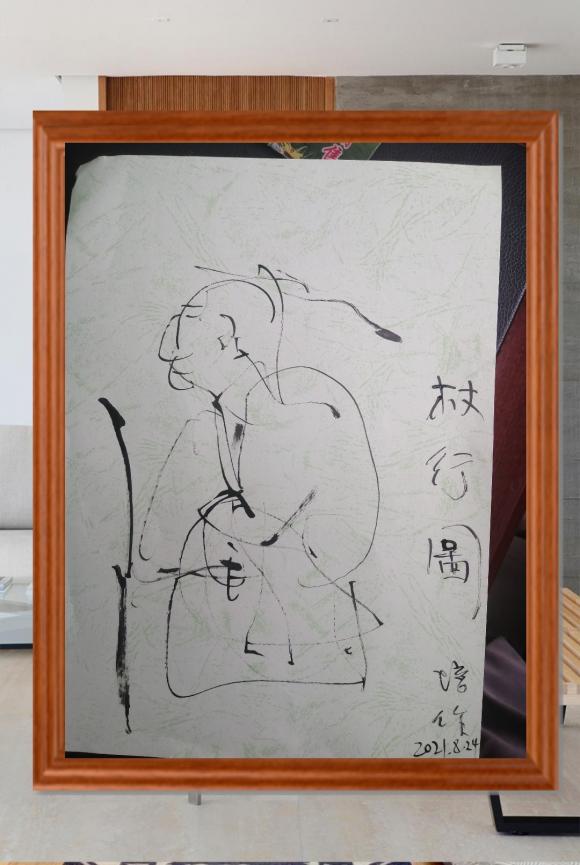 杖
行
圖
培
2021.8.24